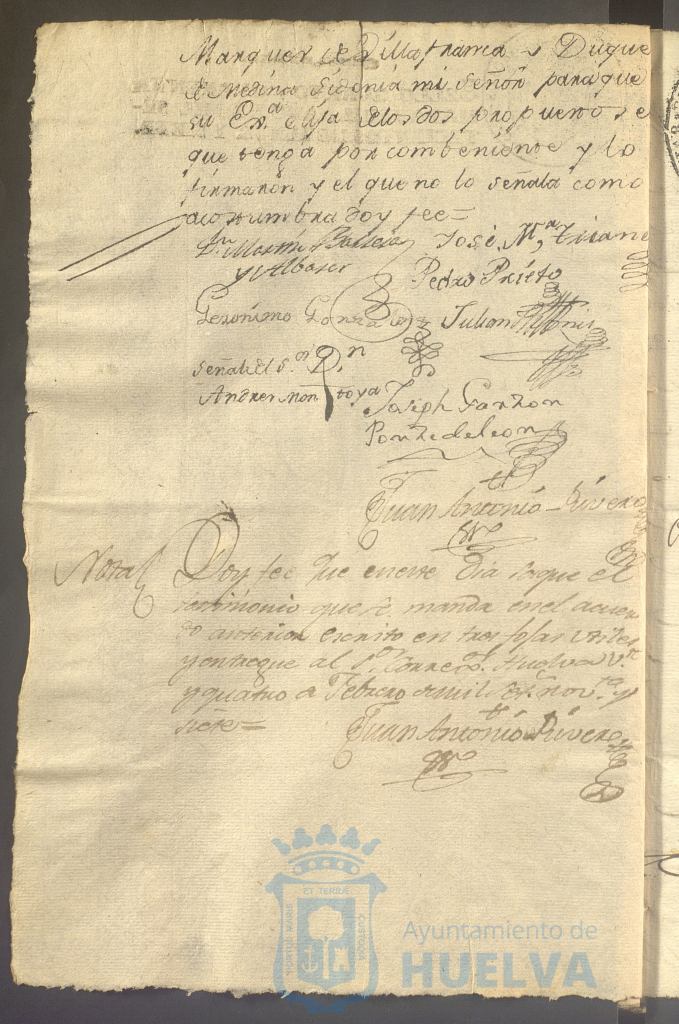 Marques de Villafranca y Duque
de Medina Sidonia mi señor para que
su Exª elija de los dos propuestos el
que tenga por combeniente y lo
firmaron y el que no lo señala como
acostumbra doy fee=
Dn Martin
y Albarer
José Mª Triane
Pedro Prieto
Geronimo Gonzalez
Julian
Señal del Sor Dn
Andres Montoya
Joseph Garzon
Ponze de leon
Juan Antonio Rivero
Nota
Doy fee que en este dia saque el
testimonio que se manda en el acuer
do anterior escrito en tres fojas utiles
y entregue al Sor Correxor Huelva Vte
y quatro de Febrero de mil setns novta y
siete=
Juan Antonio Rivero
PORTUS MARIS
ET TERRE
CUSTODIA
Ayuntamiento de
HUELVA